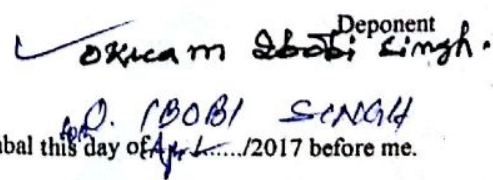 Deponent
Okram Ibobi Singh.
O. IBOBI SINGH
bal this day of April....../2017 before me.